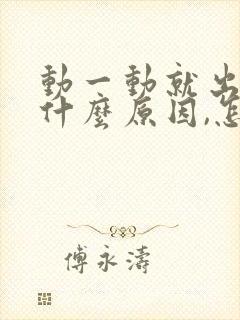 動一動就出
什麼原因,怎
傅永濤